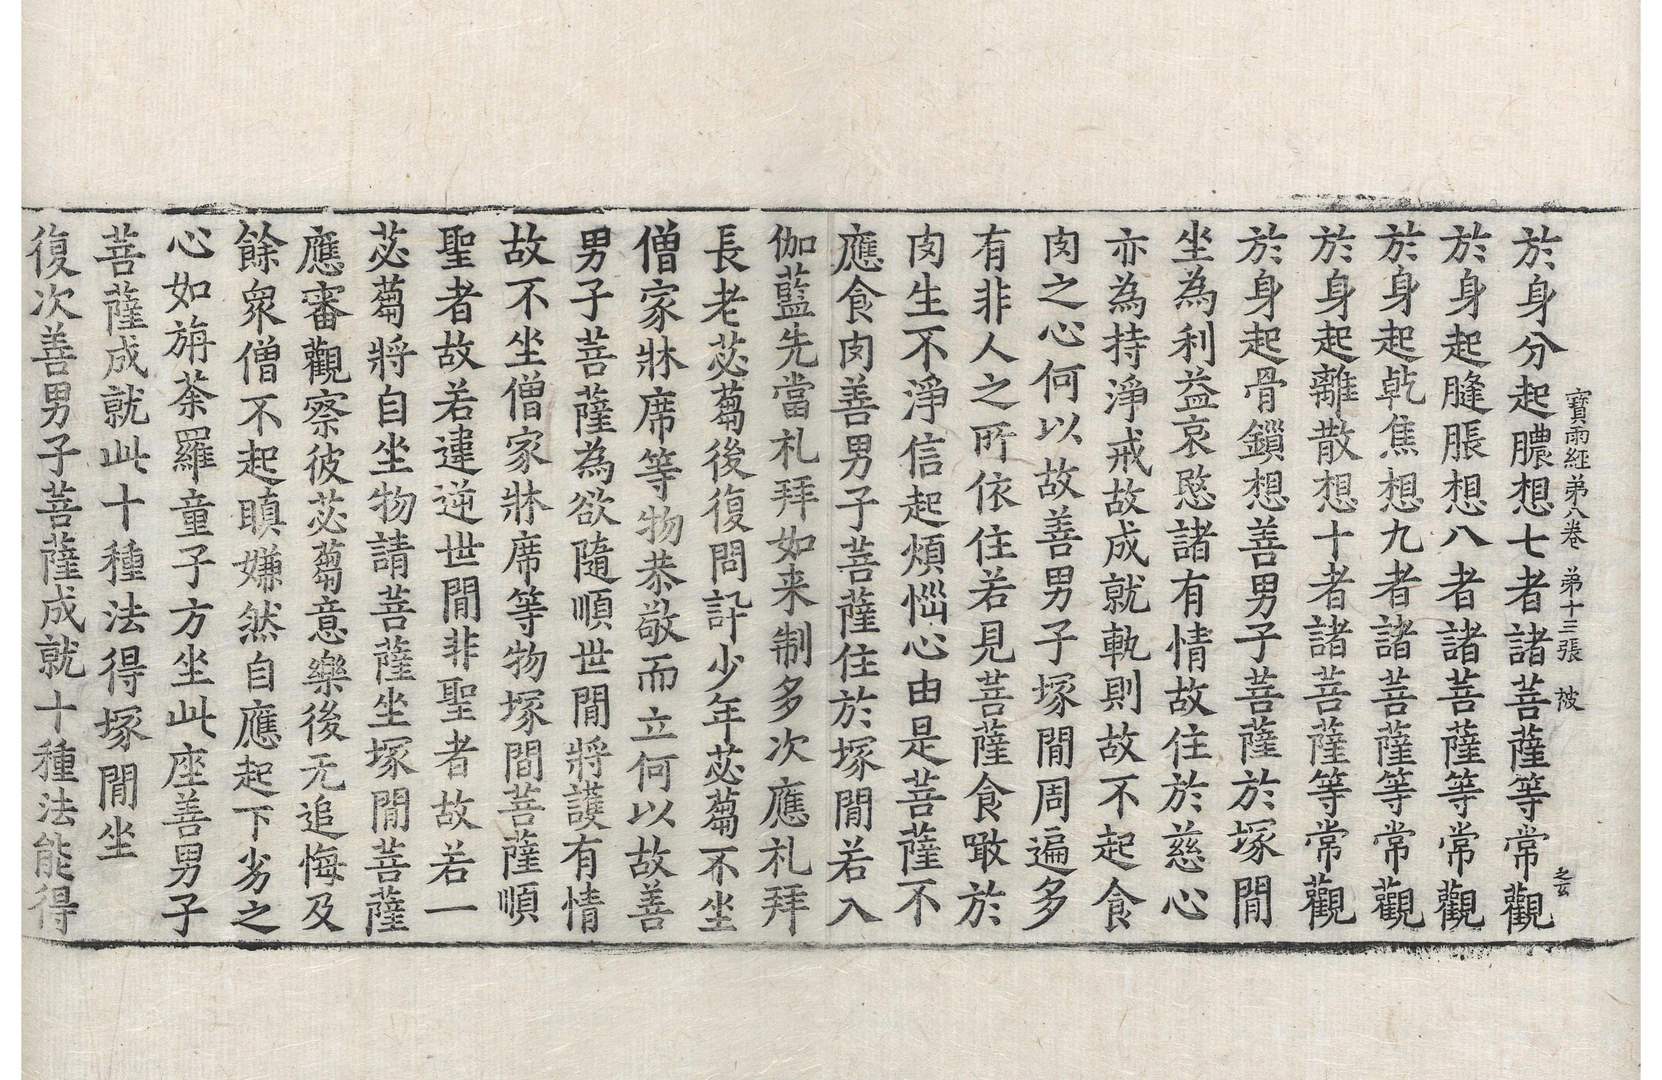 寶雨經弟八卷　弟十三張　被
之玄
於身分起膿想七者諸菩薩等常觀
於身起膖脹想八者諸菩薩等常觀
於身起乾焦想九者諸菩薩等常觀
於身起離散想十者諸菩薩等常觀
於身起骨鎖想善男子菩薩於塚閒
坐為利益哀愍諸有情故住於慈心
亦為持淨戒故成就軌則故不起食
肉之心何以故善男子塚閒周遍多
有非人之所依住若見菩薩食噉於
肉生不淨信起煩惱心由是菩薩不
應食肉善男子菩薩住於塚閒若入
伽藍先當礼拜如来制多次應礼拜
長老苾蒭後復問訃少年苾蒭不坐
僧家牀席等物恭敬而立何以故善
男子菩薩為欲隨順世閒將護有情
故不坐僧家牀席等物塚閒菩薩順
聖者故若違逆世閒非聖者故若一
苾蒭將自坐物請菩薩坐塚閒菩薩
應審觀察彼苾蒭意樂後无追悔及
餘衆僧不起瞋嫌然自應起下劣之
心如旃荼羅童子方坐此座善男子
菩薩成就此十種法得塚閒坐
復次善男子菩薩成就十種法能得